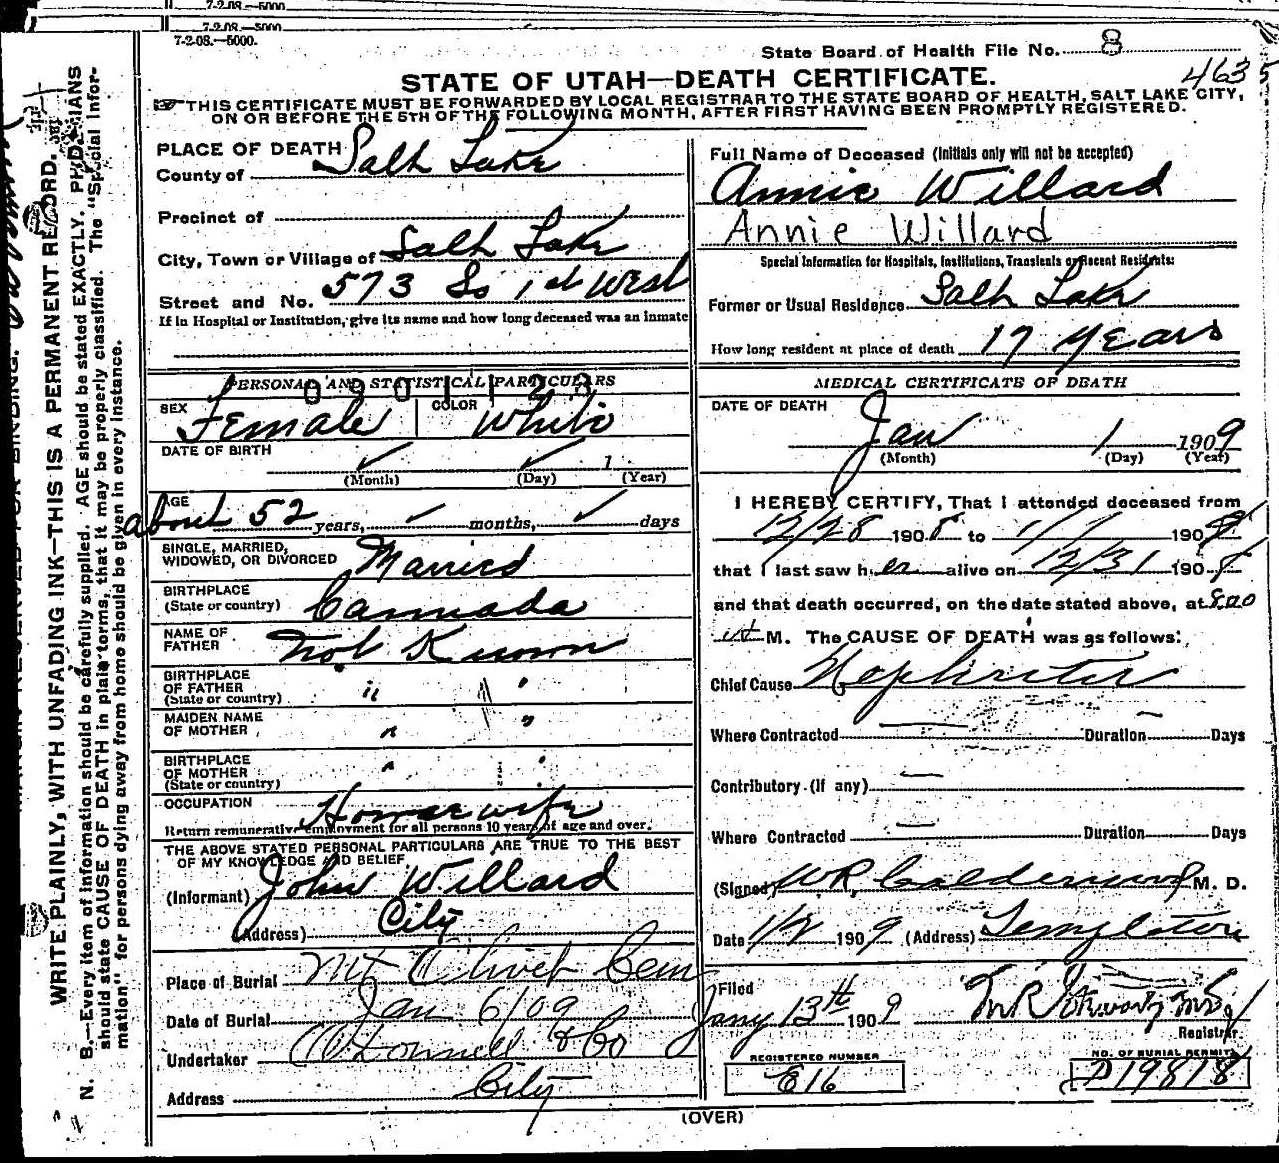 7-2-08.—5000
7-2-08.—5000
7-2-08.—5000.
State Board of Health File No. 8
STATE OF UTAH—DEATH CERTIFICATE.
463
THIS CERTIFICATE MUST BE FORWARDED BY LOCAL REGISTRAR TO THE STATE BOARD OF HEALTH, SALT LAKE CITY,
ON OR BEFORE THE 5TH OF THE FOLLOWING MONTH, AFTER FIRST HAVING BEEN PROMPTLY REGISTERED.
WRITE PLAINLY, WITH UNFADING INK—THIS IS A PERMANENT RECORD.
N. B.—Every item of information should be carefully supplied. AGE should be stated EXACTLY. PHYSICIANS
should state CAUSE OF DEATH in plain terms, that it may be properly classified. The "Special Infor-
mation" for persons dying away from home should be given in every instance.
PLACE OF DEATH
County of Salt Lake
Precinct of
City, Town or Village of Salt Lake
Street and No. 573 So 1st West
If in Hospital or Institution, give its name and how long deceased was an inmate
PERSONAL AND STATISTICAL PARTICULARS
0901123
SEX Female COLOR White
DATE OF BIRTH
1
(Month) (Day) (Year)
AGE
about 52 years, months, days
SINGLE, MARRIED,
WIDOWED, OR DIVORCED Married
BIRTHPLACE
(State or country) Cannada
NAME OF
FATHER Not Known
BIRTHPLACE
OF FATHER
(State or country) " "
MAIDEN NAME
OF MOTHER " "
BIRTHPLACE
OF MOTHER
(State or country) " "
OCCUPATION Housewife
Return remunerative employment for all persons 10 years of age and over.
THE ABOVE STATED PERSONAL PARTICULARS ARE TRUE TO THE BEST
OF MY KNOWLEDGE AND BELIEF
(Informant) John Willard
(Address) City
Place of Burial Mt Olivet Cem
Date of Burial Jan 6/09
Undertaker O'Donnell & Co
Address City
Full Name of Deceased (Initials only will not be accepted)
Annie Willard
Annie Willard
Special Information for Hospitals, Institutions, Transients or Recent Residents:
Former or Usual Residence Salt Lake
How long resident at place of death 17 Years
MEDICAL CERTIFICATE OF DEATH
DATE OF DEATH
Jan 1 1909
(Month) (Day) (Year)
I HEREBY CERTIFY, That I attended deceased from
12/28 1908 to 1/1 190
that I last saw her alive on 12/31 1908
and that death occurred, on the date stated above, at 8.00
M. The CAUSE OF DEATH was as follows:
Chief Cause Nephritis
Where Contracted Duration Days
Contributory (if any)
Where Contracted Duration Days
(Signed) WR, Calderwood M. D.
Date 1/2 1909 (Address) Templeton
Filed
Jany 13th 1909
Registrar
REGISTERED NUMBER
E16
NO. OF BURIAL PERMIT
D19818
(OVER)